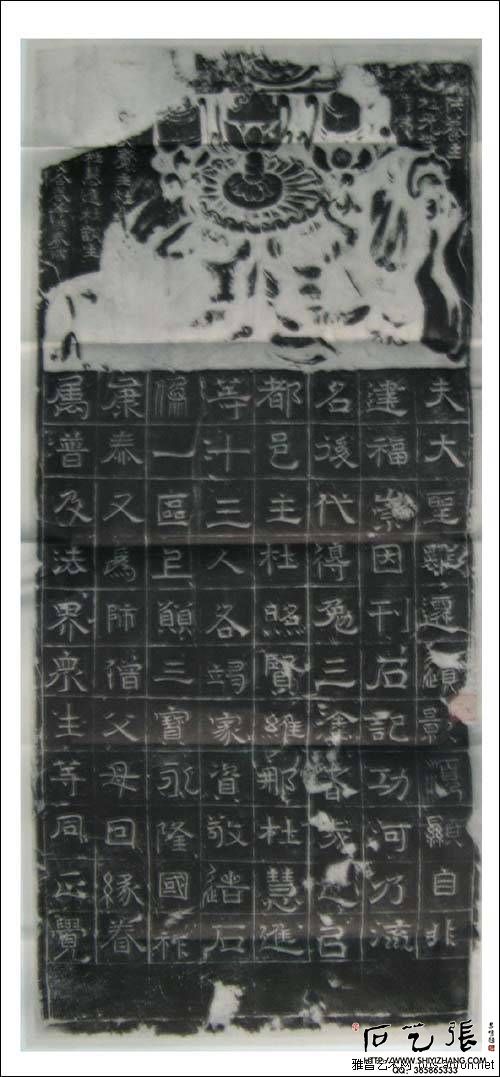 夫大聖雖遷影顯自非
建福崇因刊石記功河乃流
名後代得免三塗者
都邑主杜照賢維那杜慧進
等十三人各竭家資敬造石
像一區上願三寶永隆國祚
康泰又為師僧父母因緣眷
屬普及法界眾生等同正覺
石艺張
HTTP://WWW.SHIYIZHANG.COM
QQ: 365865333